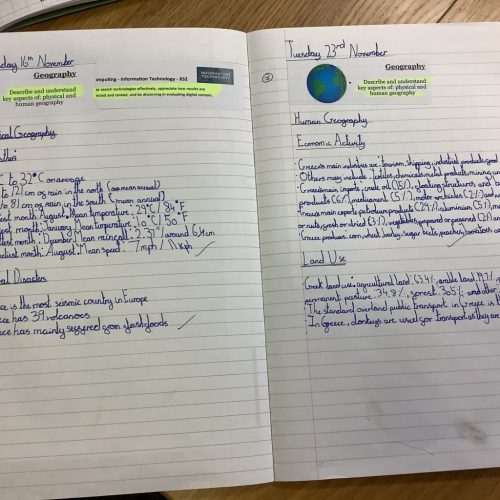 day 16th November
Geography
Describe and understand
key aspects of: physical and
human geography
mputing - Information Technology - KS2
se search technologies effectively, appreciate how results are
ected and ranked, and be discerning in evaluating digital content.
INFORMATION
TECHNOLOGY
ical Geography
ther
C to 32°C on average
to 72 cm os rain in the north (mean annual)
to 81 cm os rain in the south (mean annual)
est month: August. Mean temperature: 29°C / 84°F
est month: January. Mean temperature: 10°C / 50°F
est month: December. Mean rainfall: 2.37" / around 6.1cm
diest month: August. Mean speed: 7 mph / 11 kph
al Disasters
ce is the most seismic country in Europe
ece has 39 volcanoes
ece has mainly suffered from flash floods
Tuesday 23rd November
Geography
Describe and understand
key aspects of: physical and
human geography
Human Geography
Economic Activity
Greece's main industries are: tourism, shipping, industrial products, food
Others may include: textiles, chemicals, metal products, mining
Greece's main imports: crude oil (15%), floating structures used
products (6%), medicament (5%), motor vehicles (2%) and
Greece's main exports: petroleum products (29%), aluminium (5%), medi
or nuts, fresh or dried (3%), vegetables, prepared or preserved (2%)
Greece produces: corn, wheat, barley, sugar beets, peaches, tomatoes
Land Use
Greek land use: agricultural land: 63.4%, arable land: 19.7%
permanent pasture: 34.8%, forest 30.5%, and other
The standard overland public transport in Greece is
In Greece, donkeys are used for transport as they are